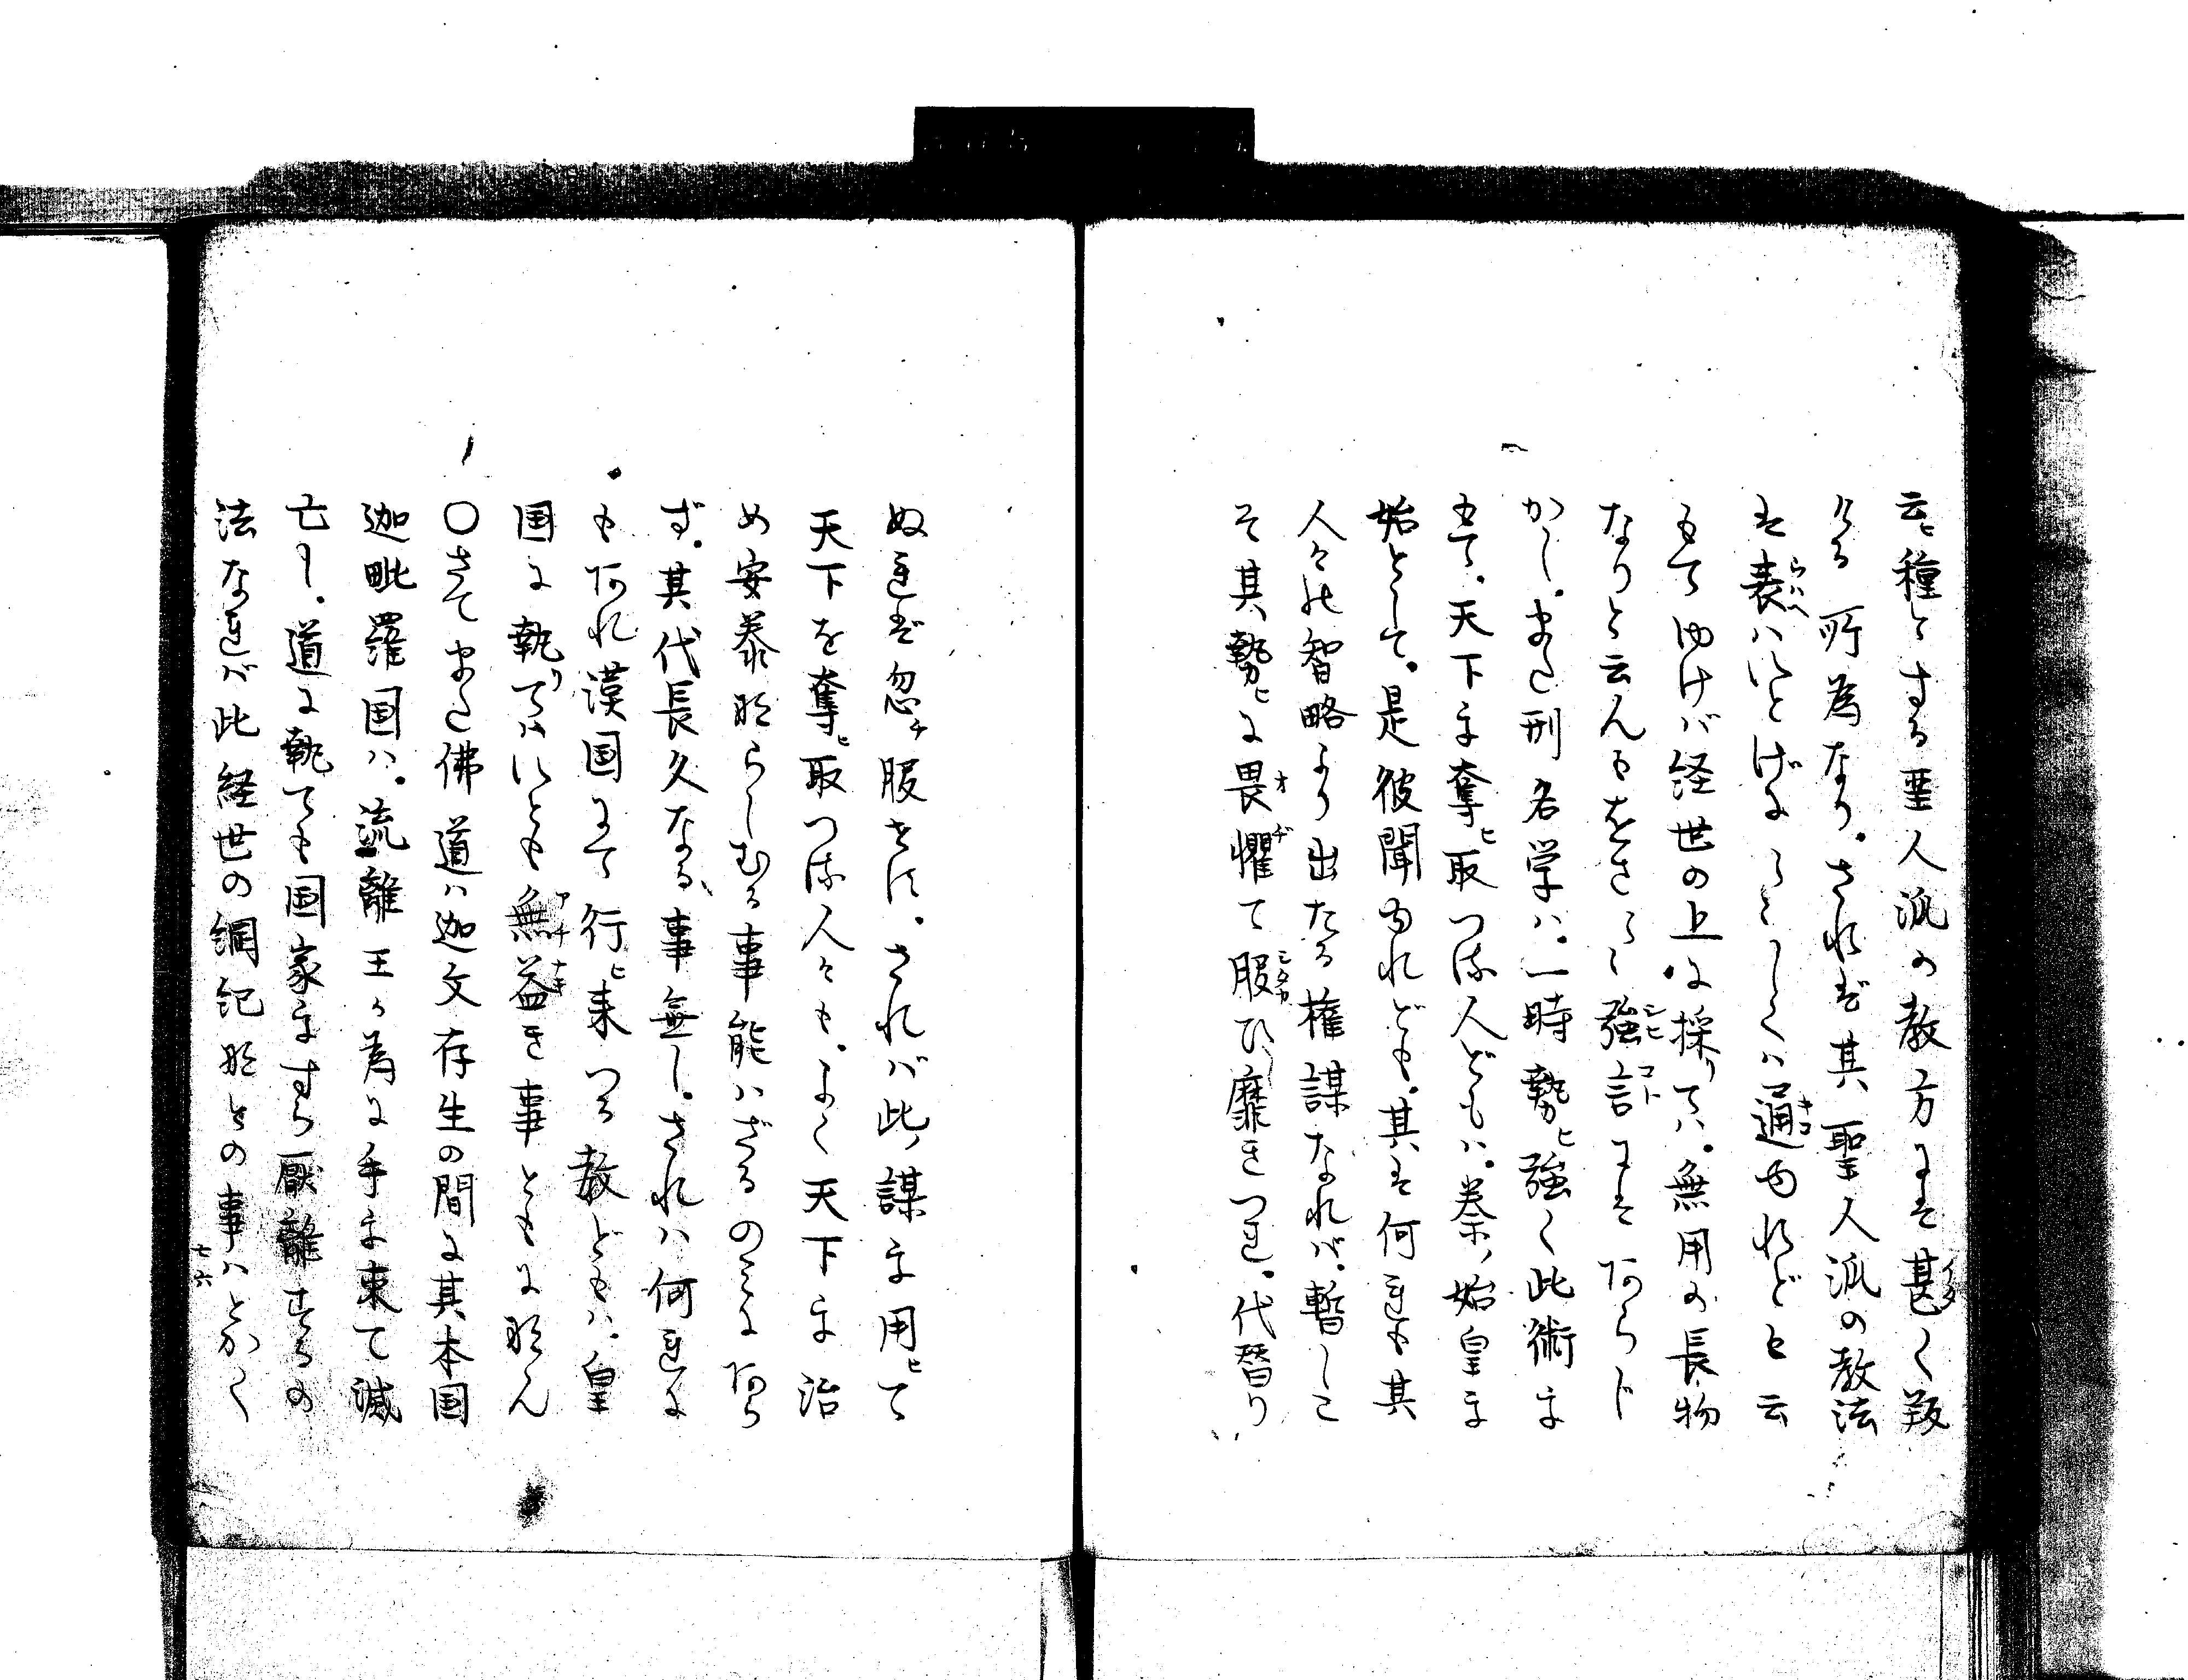 云ヒ種とする聖人流の教方にそ甚く叛
ける所為なり。されど其聖人流の教法
も表ハいとげにことしくハ通ゆれどと云
もてゆけば経世の上に採りてハ。無用の長物
なりと云んもをさ〳〵強言にそあらじ
かし。また刑名学ハ。一時勢ヒ強く此術ま
もて。天下を奪ヒ取つる人どもハ。秦ノ始皇を
始として。是彼聞ゆれども。其も何れも其
人々の智略より出たる権謀なれば。暫しこ
そ其勢ヒに畏懼て服ひ靡きつれ。代替り
ぬれど忽チ服せず。されば此ノ謀を用ヒて
天下を奪ヒ取つる人々も。よく天下を治
め安泰ならしむる事能ハざるのみにあら
ず。其代長久なる事無し。されハ何れに
もあれ漢国にて行ヒ来つる教どもハ。皇
国に執りてハいとも無益き事ともになん
〇さてまた佛道ハ迦文存生の間に其本国
迦毗羅国ハ。流離王ヶ為に手を束て滅
亡し。道に執ても国家をすら厭離するの
法なれば此経世の綱紀などの事ハとかく
七六